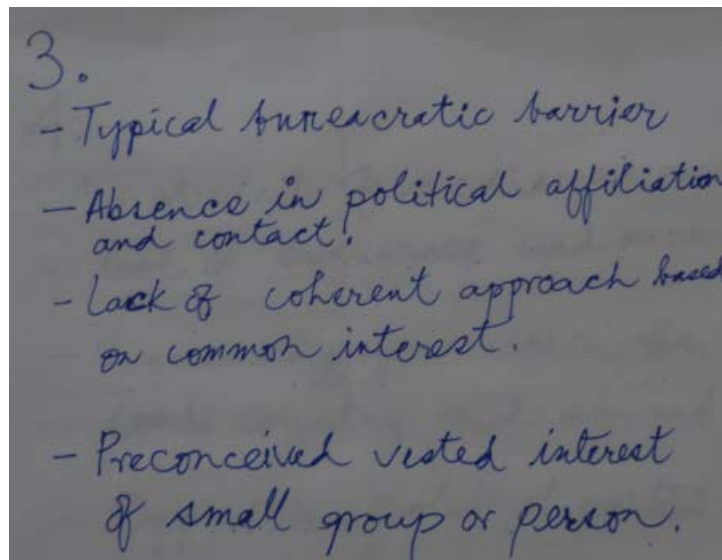 3.
- Typical bureacratic barrier
- Absence in political affiliation
and contact.
- Lack of coherent approach based
on common interest.
- Preconceived vested interest
of small group or person.